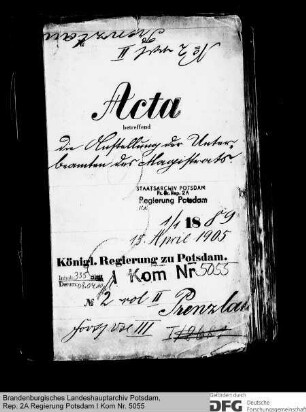 No 2 vol II
Prenzlau
Acta
betreffend
die Anstellung der Unter-
beamten des Magistrats
STAATSARCHIV POTSDAM
Pr. Br. Rep. 2A
Regierung Potsdam
1/1 1889
15 April 1905
Königl. Regierung zu Potsdam.
I Kom Nr 5055
No 2 vol II Prenzlau
Forts. Vol III
Brandenburgisches Landeshauptarchiv Potsdam,
Rep. 2A Regierung Potsdam I Kom Nr. 5055
Gefördert durch
DFG Deutsche
Forschungsgemeinschaft